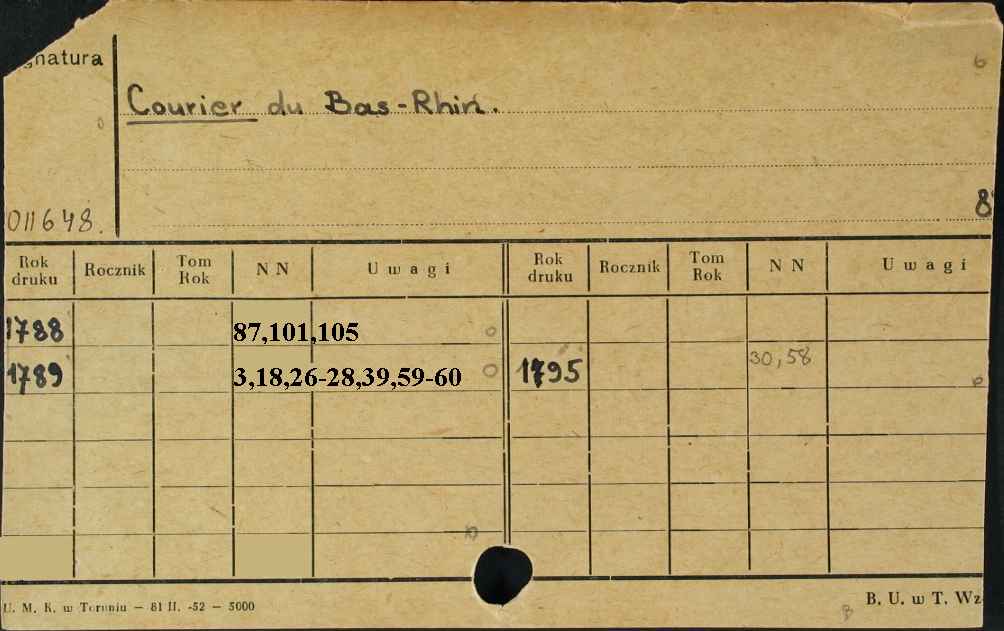 gnatura
6
Courier du Bas-Rhin.
011648.
8
Rok druku Rocznik Tom Rok NN Uwagi Rok druku Rocznik Tom Rok NN Uwagi
1788 87,101,105
1789 3,18,26-28,39,59-60 1795 30,58
U. M. K. w Toruniu – 81 II. -52 – 5000
B. U. w T. Wz